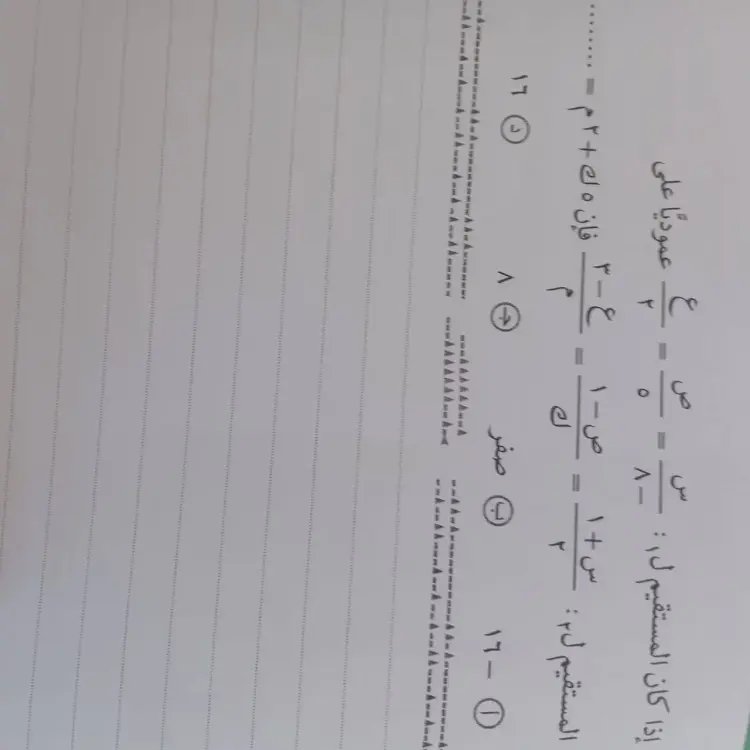 إذا كان المستقيم ل١ : س/-٨ = ص/٥ = ع/٢ عموديًّا على
المستقيم ل٢ : س+١/٢ = ص-١/ك = ع-٣/م فإن ٥ك+٢م = ........
أ -١٦ ب صفر ج ٨ د ١٦